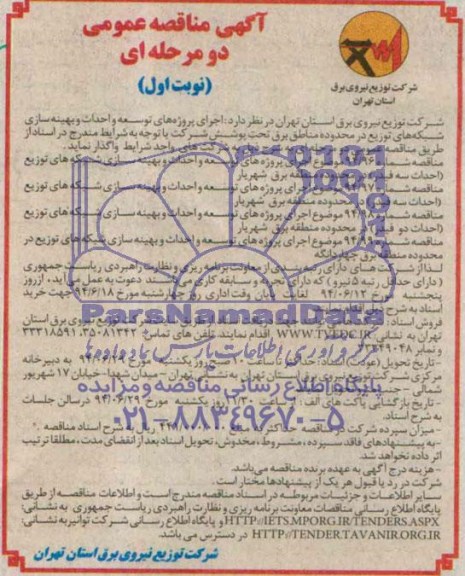 آگهی مناقصه عمومی
دو مرحله ای
(نوبت اول)
شرکت توزیع نیروی برق
استان تهران
شرکت توزیع نیروی برق استان تهران در نظر دارد: اجرای پروژه‌های توسعه و احداث و بهینه سازی
شبکه‌های توزیع در محدوده مناطق برق تحت پوشش شرکت با توجه به شرایط مندرج در اسناد از
طریق مناقصه عمومی به شرکت های واجد شرایط واگذار نماید.
مناقصه شماره ۹۴/۹۶ موضوع اجرای پروژه های توسعه و احداث و بهینه سازی شبکه های توزیع
(احداث سه محدوده منطقه برق شهریار
مناقصه شماره ۹۴/۹۷ موضوع اجرای پروژه های توسعه و احداث و بهینه سازی شبکه های توزیع
(احداث سه محدوده منطقه برق شهریار
مناقصه شماره ۹۴/۹۸ موضوع اجرای پروژه های توسعه و احداث و بهینه سازی شبکه های توزیع
(احداث دو محدوده منطقه برق شهریار
مناقصه شماره ۹۴/۹۹ موضوع اجرای پروژه های توسعه و احداث و بهینه سازی شبکه های توزیع در
محدوده منطقه برق چهاردانگه
لذا از شرکت های دارای از معاونت برنامه ریزی و نظارت راهبردی ریاست جمهوری
(دارای حداقل رتبه ۵ نیرو) که دارای تجربه و سابقه کاری می باشند دعوت به عمل می آید، از روز
پنجشنبه مورخ ۹۴/۰۶/۱۲ لغایت پایان وقت اداری روز چهارشنبه مورخ ۹۴/۶/۱۸ جهت خرید
اسناد به شرح
فروش اسناد: توزیع نیروی برق استان
تهران به نشانی WWW.TVEDC.IR اقدام نمایند. تلفن های تماس: ۳۵۰۸۱۳۴۲، ۳۳۳۱۸۵۹۱
و نمابر ۳۳۳۴۹۰۴۸
-تاریخ تحویل (عودت) اسناد: صبح روز یکشنبه مورخ به دبیرخانه
مرکزی شرکت توزیع نیروی برق استان تهران به نشانی: تهران - میدان شهدا- خیابان ۱۷ شهریور
شمالی
-تاریخ بازگشائی پاکت های الف: از ساعت ۹/۳۰ روز یکشنبه مورخ ۹۴/۰۶/۲۹ در سالن جلسات
به شرح اسناد.
-میزان سپرده شرکت در مناقصه حداکثر ریال به شرح اسناد مناقصه
-به پیشنهادهای فاقد سپرده، مشروط، مخدوش، تحویل اسناد بعد از انقضای مدت، مطلقا ترتیب
اثر داده نخواهد شد.
- هزینه درج آگهی به عهده برنده مناقصه می‌باشد.
شرکت در رد یا قبول هر یک از پیشنهادها مختار است.
سایر اطلاعات و جزئیات مربوطه در اسناد مناقصه مندرج است و اطلاعات مناقصه از طریق
پایگاه اطلاع رسانی مناقصات معاونت برنامه ریزی و نظارت راهبردی ریاست جمهوری به نشانی:
HTTP://IETS.MPORG.IR/TENDERS.ASPX و پایگاه اطلاع رسانی شرکت توانیر به نشانی:
HTTP://TENDER.TAVANIR.ORG.IR در دسترس می باشد.
شرکت توزیع نیروی برق استان تهران
ParsNamadData
گردآوری اطلاعات پارس نماد داده ها
پایگاه اطلاع رسانی مناقصه و مزایده
۰۲۱-۸۸۳۴۹۶۷۰-۵